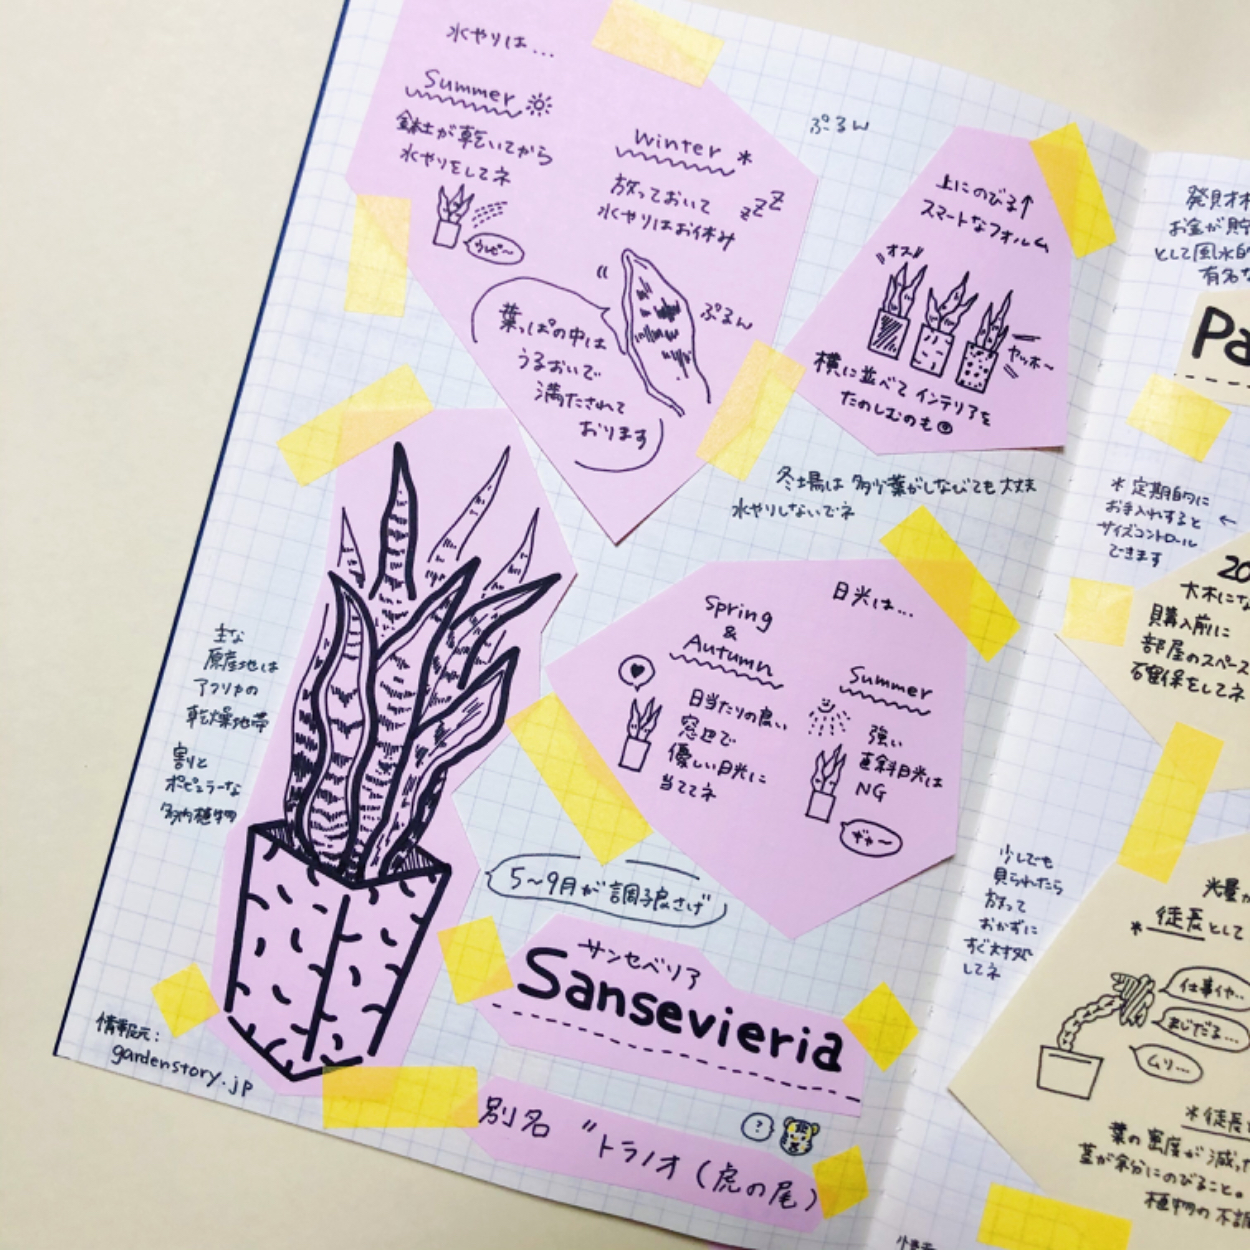 水やりは...
Summer
鉢土が乾いてから
水やりをしてネ
ウレピ〜
Winter *
放っておいて
水やりはお休み
zzz
葉っぱの中は
うるおいで
満たされて
おります
ぷるん
ぷるん
上にのびる↑
スマートなフォルム
オス
ヤッホ〜
横に並べて インテリアを
たのしむのも◎
冬場は 多少葉がしなびても大丈夫
水やりしないでネ
日光は...
Spring
&
Autumn
日当たりの良い
窓辺で
優しい日光に
当ててネ
Summer
強い
直射日光は
NG
ギャ〜
主な
原産地は
アフリカの
乾燥地帯
割と
ポピュラーな
多肉植物
5〜9月が調子良さげ
サンセベリア
Sansevieria
別名 "トラノオ (虎の尾)
?
情報元:
gardenstory.jp
発財木
お金が貯
として風水的
有名な
Pa
* 定期的に
お手入れすると
サイズコントロール
できます
←
20
大木にな
購入前に
部屋のスペース
確保をしてネ
少しでも
見られたら
放って
おかずに
すぐ対処
してネ
光量が
* 徒長として
仕事イヤ..
まじだる...
ムリ...
*徒長
葉の密度が減った
茎が余分にのびること。
植物の不調
情報元